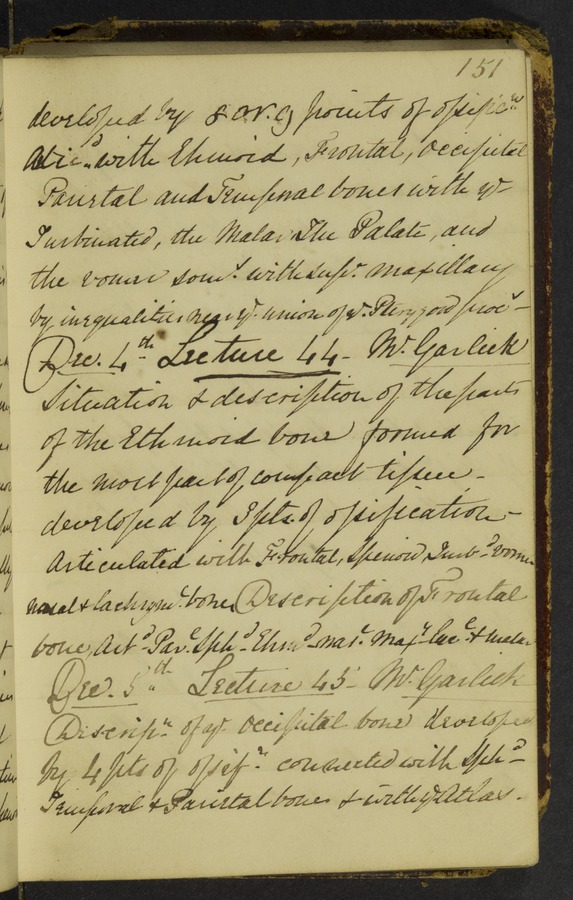 151
developed by 8 or 9 points of ossific.n
Artic.d with Ethmoid, Frontal, Occipital
Parietal and Temporal bones with ye
Turbinated, the Malar The Palate, and
the vomer som.t with sup.r maxillary
by inequalities near ye union of ye Pterygoid proc.s
Dec. 4th Lecture 44 - Mr. Garlick
Situation & description of the parts
of the Ethmoid bone formed for
the most part of compact tissue -
developed by 3 pts. of ossification -
Articulated with Frontal, Sphenoid Turb.d vomer
nasal & lachrym.l bone Description of Frontal
bone, Art.d Par.l Sph.d Ethm.d nas.l Max.y Lac.l & malar
Dec. 5th Lecture 45 - Mr. Garlick
Descrip.n of ye Occipital bone developed
by 4 pts of ossif.n connected with Sph.d -
Temporal & Parietal bones & with ye Atlas.